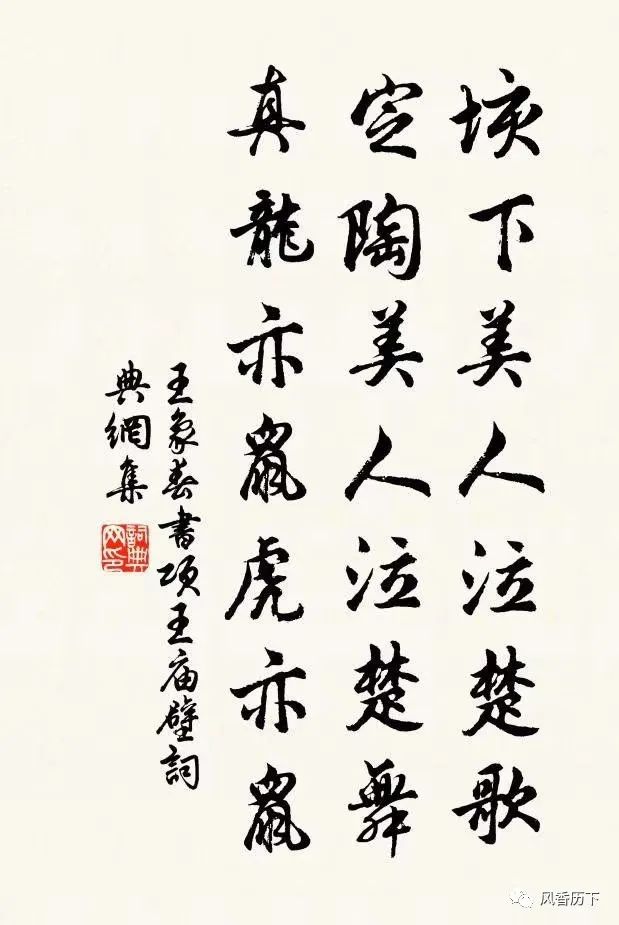 垓下美人泣楚歌
定陶美人泣楚舞
真龍亦鼠虎亦鼠
王象春書项王庙壁詞
典網集
詞典网印
风香历下